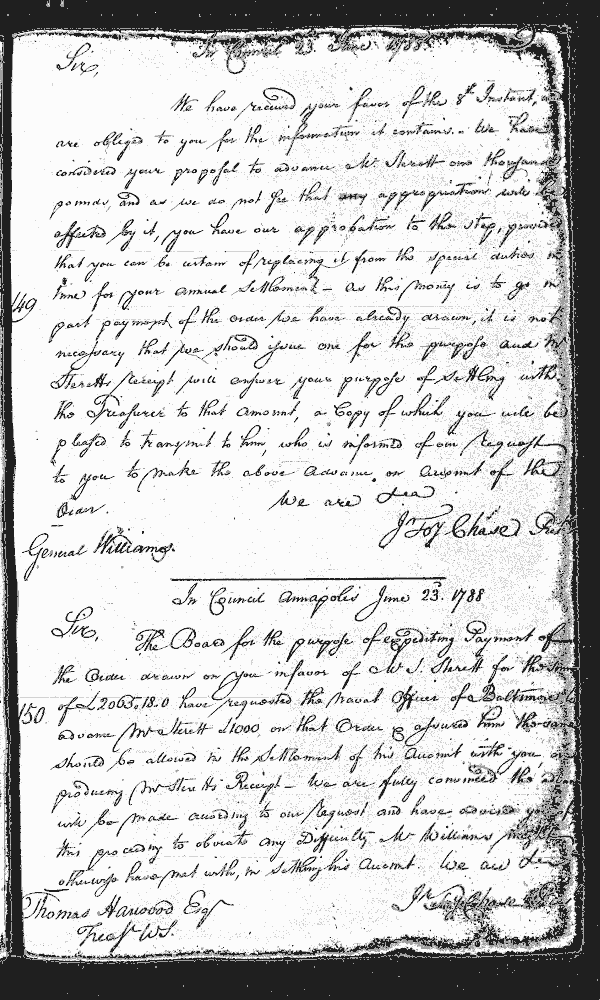 In Council 23 June 1788
Sir,
We have received your favor of the 8th Instant,
are obliged to you for the information it contains. - We have
considered your proposal to advance Mr Sterett one thousand
pounds, and as we do not see that any appropriation will be
affected by it, you have our approbation to the step, provided
that you can be certain of replacing it from the special duties in
149
time for your annual Settlement - As this money is to go in
part payment of the order we have already drawn, it is not
necessary that we should issue one for the purpose and Mr
Steretts Receipt will answer your purpose of settling with
the Treasurer to that amount, a Copy of which you will be
pleased to transmit to him, who is informed of our Request
to you to make the above Advance on Account of the
Order. We are &ca
Chase Prest
General Williams.
In Council Annapolis June 23. 1788
Sir, The Board for the purpose of expediting Payment of
the Order drawn on you in favor of Mr S. Sterett for the sum
150
of £2065.18.0 have requested the Naval Officer of Baltimore to
advance Mr Sterett £1000, on that Order & assured him the same
should be allowed in the Settlement of his Account with you, on
producing Mr Steretts Receipt - We are fully convinced the
will be made according to our Request and have advised you of
this proceeding to obviate any Difficulty Mr Williams might
otherwise have met with, in settling his Account. We are &ca
Chase
Thomas Harwood Esqr
Treasr W.S.